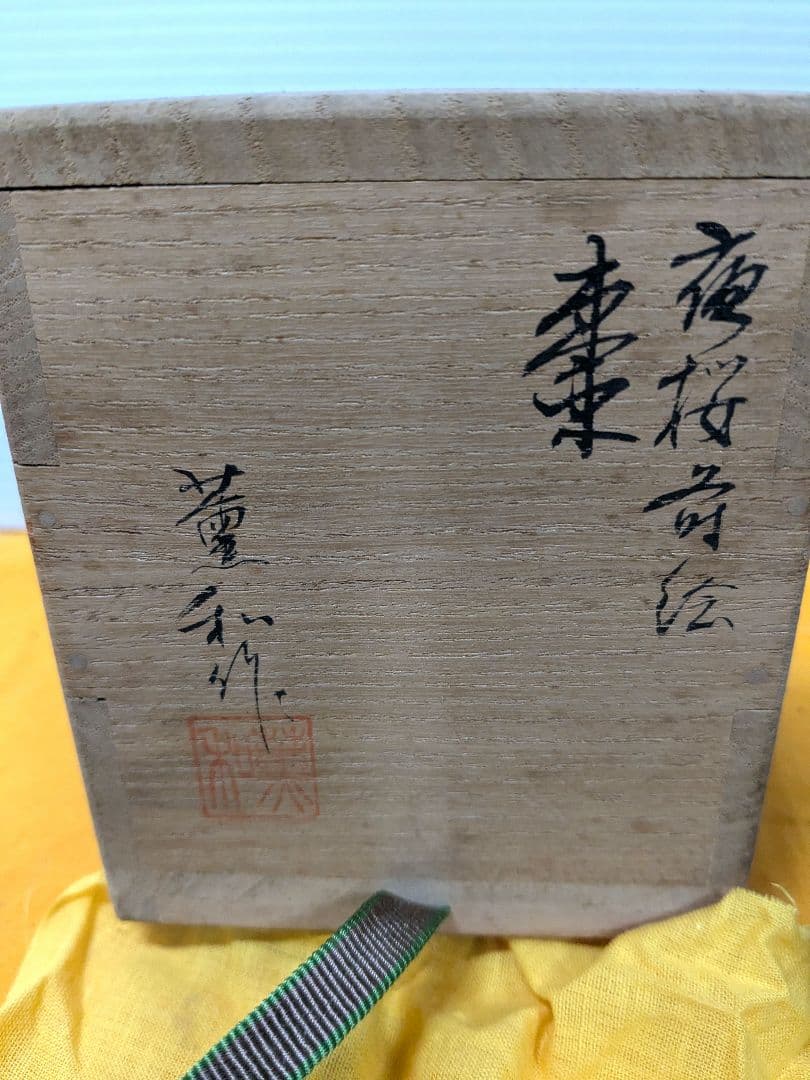 夜桜蒔絵
棗
薫和作
薫和